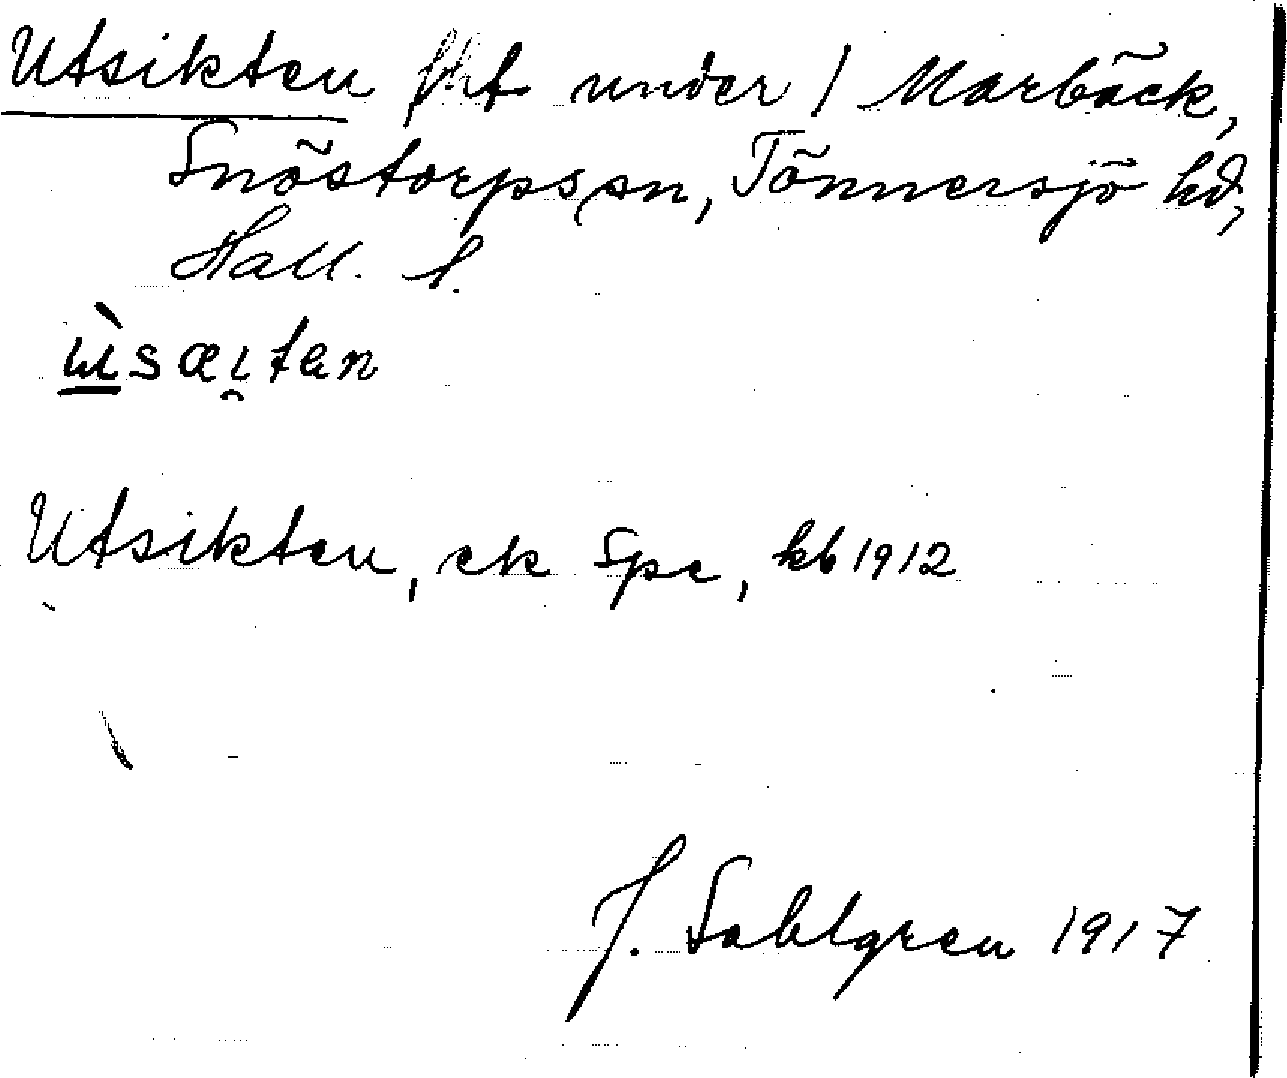 Utsikten lht under / Marbäck,
Snöstorps sn, Tönnersjö hd,
Hall. l.
Utsikten, ek Spe, kb 1912
J. Sahlgren 1917